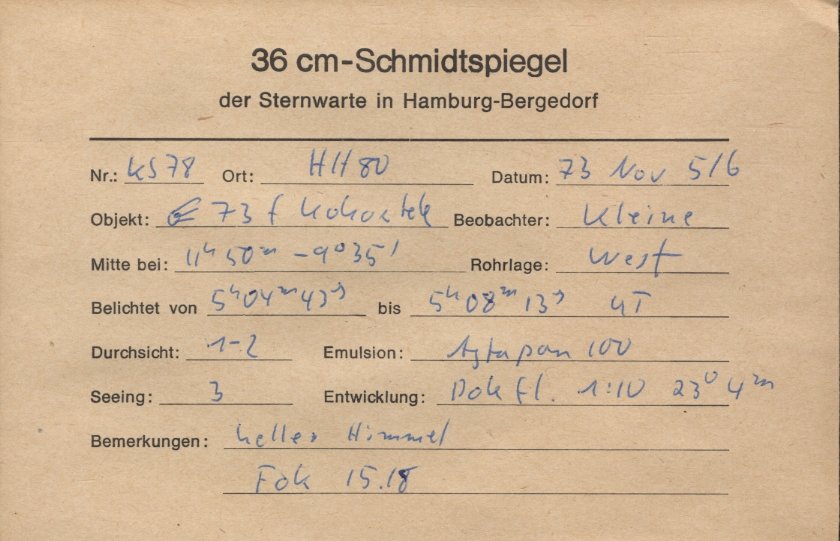 36 cm-Schmidtspiegel
der Sternwarte in Hamburg-Bergedorf
Nr.: KS78 Ort: HH80 Datum: 73 Nov 5/6
Objekt: 73 f Kohoutek Beobachter: Kleine
Mitte bei: 11h 50m -9°35' Rohrlage: West
Belichtet von 5h04m43s bis 5h08m13s UT
Durchsicht: 1-2 Emulsion: Agfapan 100
Seeing: 3 Entwicklung: Dok fl. 1:10 23° 4m
Bemerkungen: heller Himmel
Fok 15.18